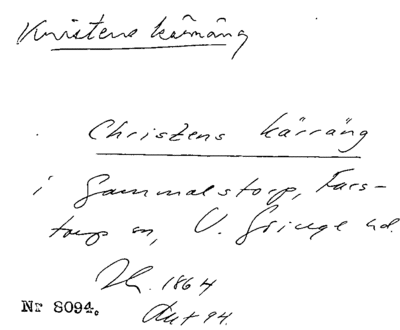 Kristens kärräng
Christens kärräng
i Gammalstorp, Fars-
torp sn, V. Göinge hd.
Lh. 1864
Akt 94.
Nr 8094.